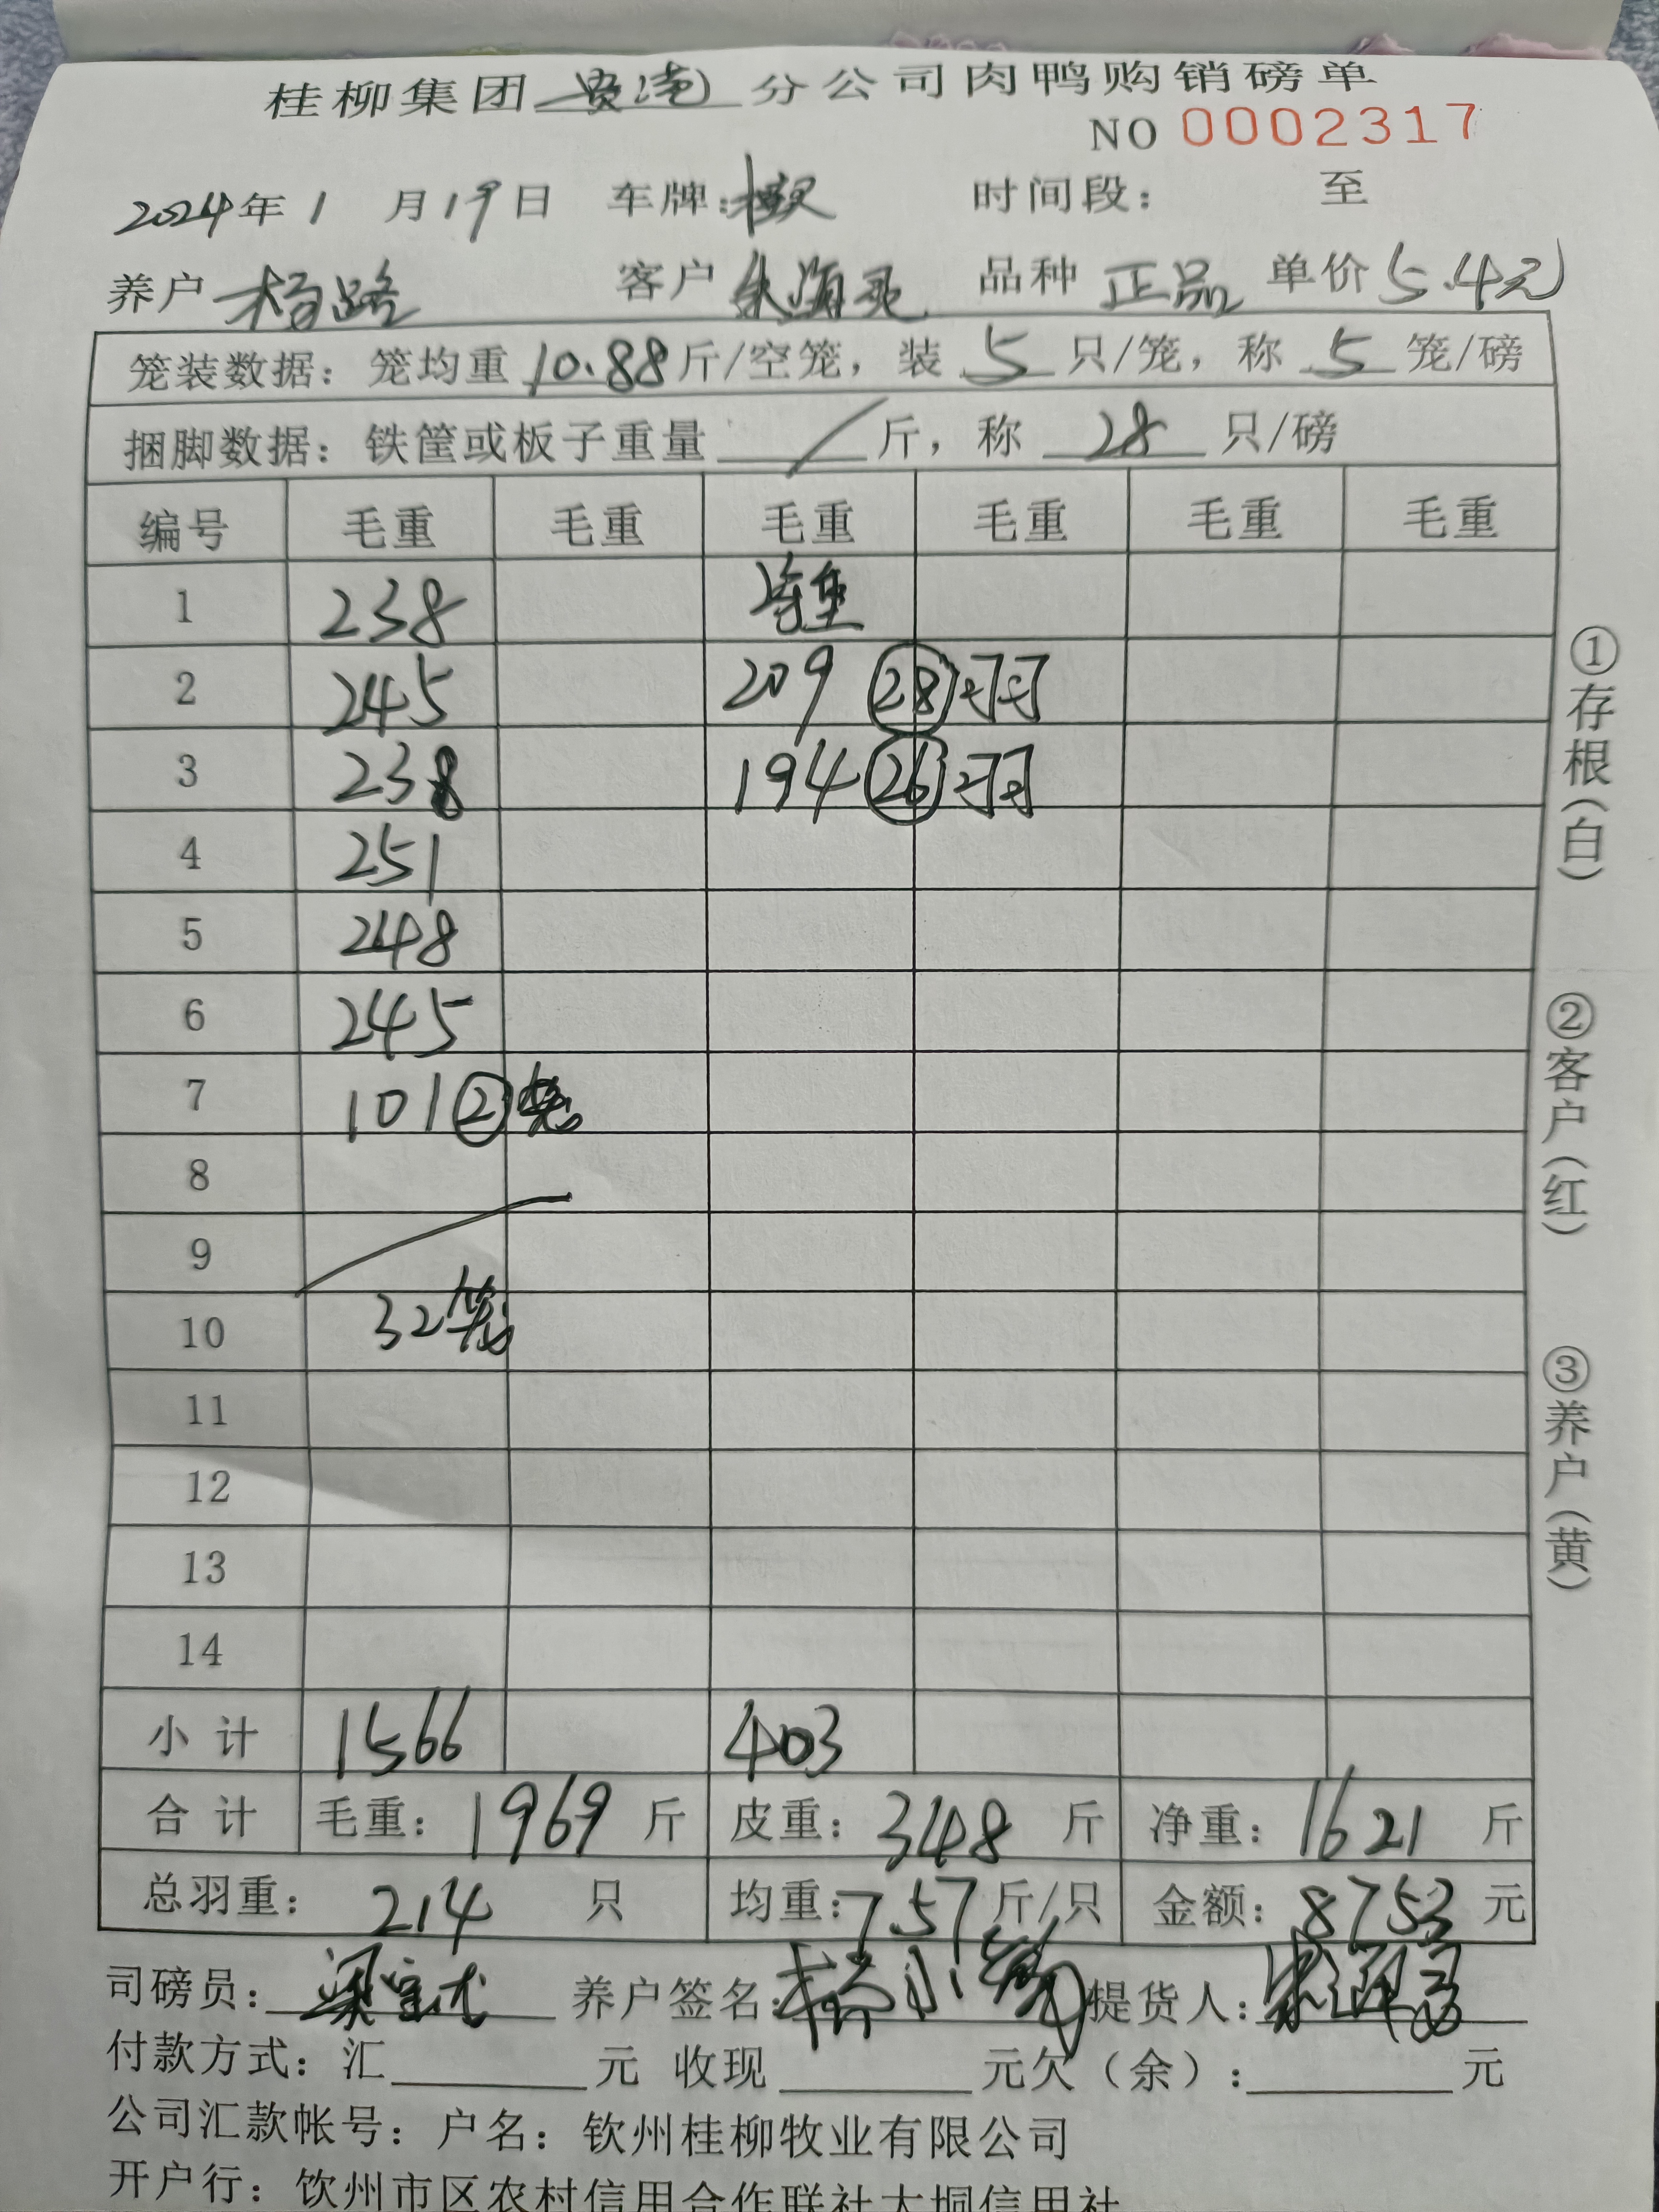 桂柳集团贵港分公司肉鸭购销磅单
NO 0002317
2024年1月19日 车牌: 时间段: 至
养户 杨路 客户 朱海 品种 正品 单价 5.4元
笼装数据：笼均重 10.88 斤/空笼，装 5 只/笼，称 5 笼/磅
捆脚数据：铁筐或板子重量 / 斤，称 28 只/磅
编号 毛重 毛重 毛重 毛重 毛重 毛重
1 238
2 245 209 28羽
3 238 194 26羽
4 251
5 248
6 245
7 101 2笼
8
9
10 32笼
11
12
13
14
小计 1566 403
合计 毛重：1969 斤 皮重：348 斤 净重：1621 斤
总羽重：214 只 均重：7.57 斤/只 金额：8753 元
司磅员: 养户签名: 提货人:
付款方式：汇 元 收现 元欠（余）: 元
公司汇款帐号：户名：钦州桂柳牧业有限公司
开户行：饮州市区农村信用合作联社大垌信用社
①存根（白）
②客户（红）
③养户（黄）